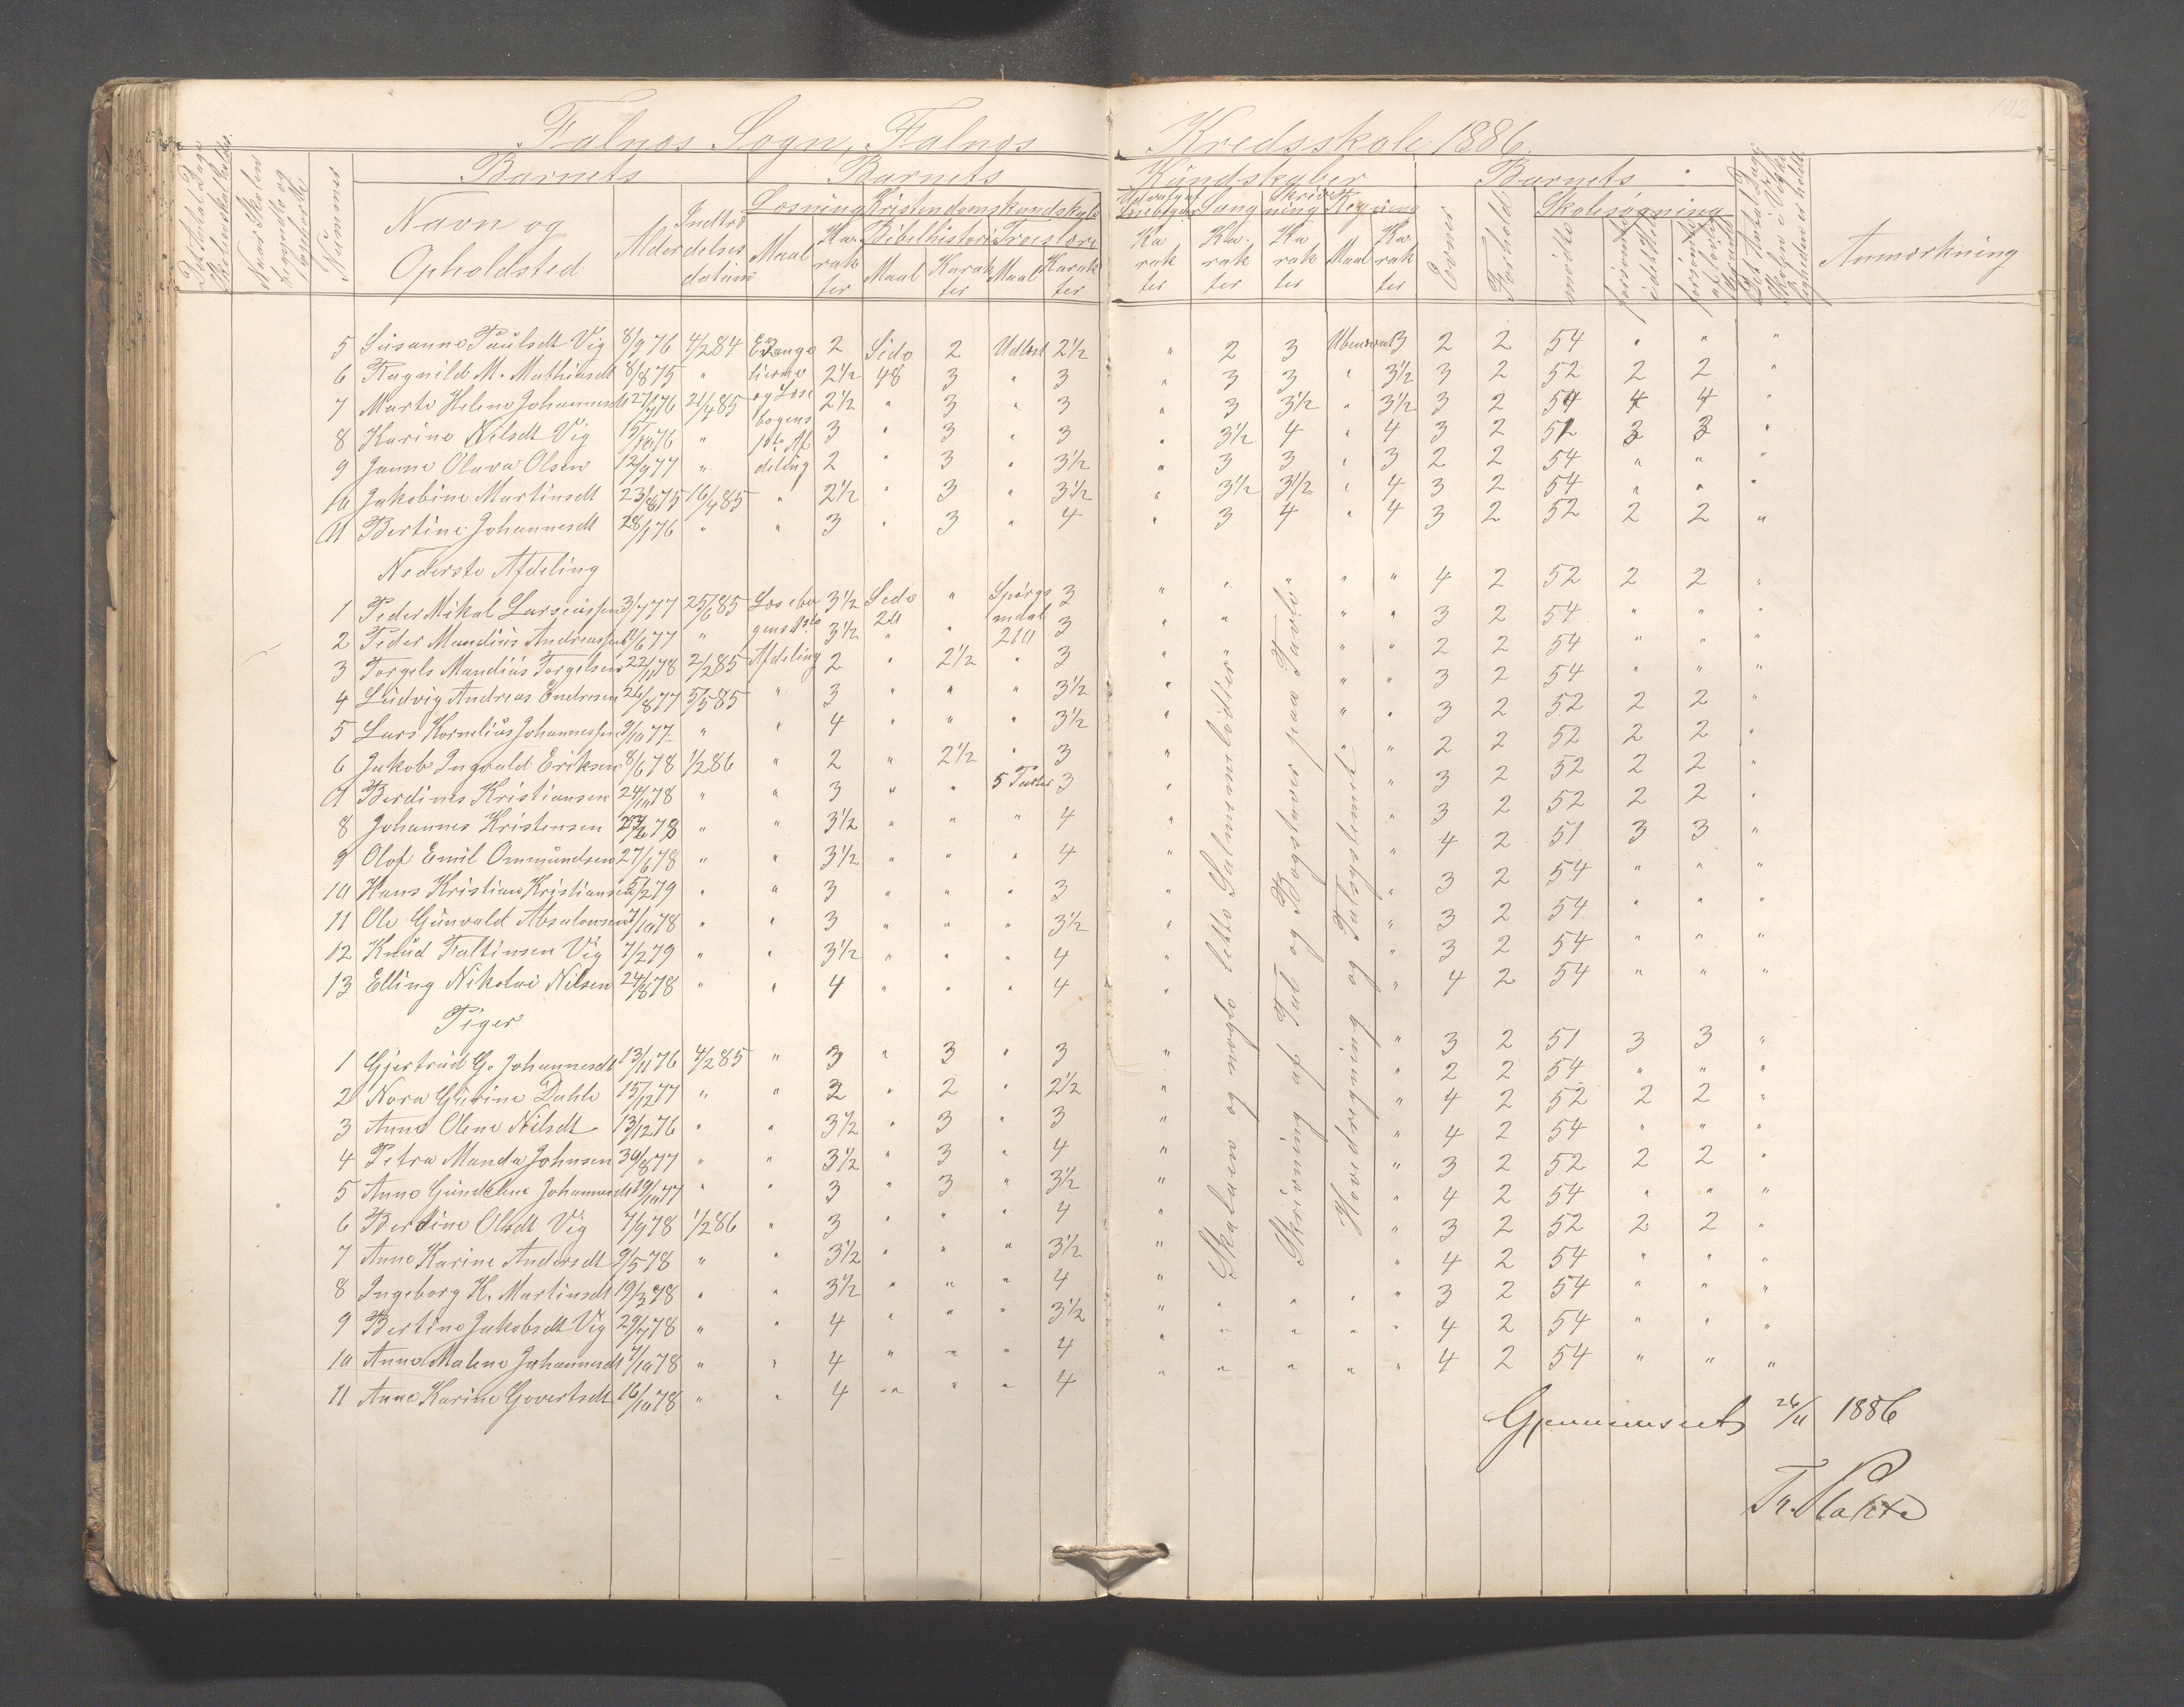 102
Falnæs Sogn, Falnæs Kredsskole 1886.
Det Antal Dage Skolen skal holdes.
Naar Skolen begyndte og ophørte
Nummer
Barnets Barnets Kundskaber Barnets
Navn og Opholdsted
Alder
Indtrædelses datum
Læsning Kristendomskundskab
Maal Karakter
Bibelhistorie Troeslære
Maal Karakter Maal Karakter
Udvalg af Læsebogen Sang Skrivning Regning
Karakter Karakter Karakter Maal Karakter
Evner Forhold
Skolesøgning
mødte forsømte i det Hele forsømte af lovlig Grund
Det Antal Dage Skolen i Virkeligheden er holdt
Anmærkning
5 Susanne Paulsdt Vig 8/9 76 4/2 84 Evange 2 Side 2 Udlært 2 1/2 " 2 3 Ubenævnt 3 2 2 54 " " "
6 Ragnild M. Mathiasdt 8/8 75 " lierne 2 1/2 48 3 " 3 " 3 3 " 3 1/2 3 2 52 2 2 "
7 Marte Helene Johannesdt 27/1 76 21/4 85 og Læse 2 1/2 " 3 " 3 " 3 3 1/2 " 3 1/2 3 2 54 4 4 "
8 Karine Nilsdt Vig 15/10 76 " bogens 3 " 3 " 3 " 3 1/2 4 " 4 3 2 51 3 3 "
9 Janne Olava Olsen 12/9 77 " 1ste Af deling 2 " 3 " 3 1/2 " 3 3 " 3 2 2 54 " " "
10 Jakobine Martinsdt 23/8 75 16/4 85 " 2 1/2 " 3 " 3 1/2 " 3 1/2 3 1/2 " 4 3 2 54 " " "
11 Bertine Johannesdt 28/1 76 " " 3 " 3 " 4 " 3 4 " 4 3 2 52 2 2 "
Nederste Afdeling
1 Peder Mikal Larsensen 3/7 77 25/6 85 Læsebo 3 1/2 Side " Spørgs 3 " " " " " 4 2 52 2 2 "
2 Peder Mandius Andreassen 11/6 77 " gens 1ste 3 1/2 20 " maal 210 3 " " " " 3 2 54 " " "
3 Torgels Mandius Torgelsen 22/11 78 2/2 85 Afdeling 2 " 2 1/2 " 3 " " " 2 2 54 " " "
4 Ludvig Andreas Endresen 26/8 77 5/5 85 " 3 " " " 3 1/2 " " " 3 2 54 " " "
5 Lars Kornelius Johannessen 9/10 77 " " 4 " " " 3 1/2 " " " 3 2 52 2 2 "
6 Jakob Ingvald Eriksen 8/6 78 1/2 86 " 2 " 2 1/2 " 3 " " " 2 2 52 2 2 "
7 Berdines Kristiansen 24/10 78 " " 3 " " 5 Parter 3 " " 3 2 52 2 2 "
8 Johannes Kristensen 78 " " 3 1/2 " " " 4 " 3 2 52 2 2 "
9 Olof Emil Ommundsen 27/6 78 " " 3 1/2 " " " 4 " " 4 2 51 3 3 "
10 Hans Kristian Kristiansen 5/2 79 " " 3 " " " 3 " " 3 2 54 " " "
11 Ole Gunvald Absalonsen 7/10 78 " " 3 " " " 3 1/2 " " 3 2 54 " " "
12 Knud Faltinsen Vig 7/2 79 " " 3 1/2 " " " 4 " " 3 2 54 " " "
13 Elling Nikolai Nilsen 24/8 78 " " 4 " " " 4 " " 4 2 54 " " "
Piger
1 Gjertrud G. Johannesdt 13/11 76 4/2 85 " 3 " 3 " 3 " " 3 2 51 3 3 "
2 Nora Gurine Dahle 15/12 77 " " 2 " 2 " 2 1/2 " " 2 2 54 " " "
3 Anne Olene Nilsdt 13/12 76 " " 3 1/2 " 3 " 3 " " 4 2 52 2 2 "
4 Petra Manda Johnsen 30/8 77 " " 3 1/2 " 3 " 4 " " 4 2 54 " " "
5 Anne Gundelene Johannesdt 29/10 77 " " 3 " 3 " 3 1/2 " " 3 2 52 2 2 "
6 Berdine Olsdt Vig 7/9 78 1/2 86 " 3 " " " 4 " " 4 2 54 " " "
7 Anne Karine Andersdt 9/5 78 " " 3 1/2 " " " 3 1/2 " " 3 2 52 2 2 "
8 Ingeborg K. Martinsdt 19/3 78 " " 3 1/2 " " " 4 " " 4 2 54 " " "
9 Bertine Jakobsdt Vig 29/7 78 " " 4 " " " 3 1/2 " " " " " 3 2 54 " " "
10 Anne Malene Johannesdt 7/10 78 " " 4 " " " 4 " " " " " 4 2 54 " " "
11 Anne Karine Govertsdt 16/10 78 " " 4 " " " 4 " " " " " 4 2 54 " " "
Skalaen og nogle lette Salmemelodier
Skrivning af Tal og Bogstaver paa Tavle
Hovedregning og Talsystemet
Gjennemseet 26/11 1886